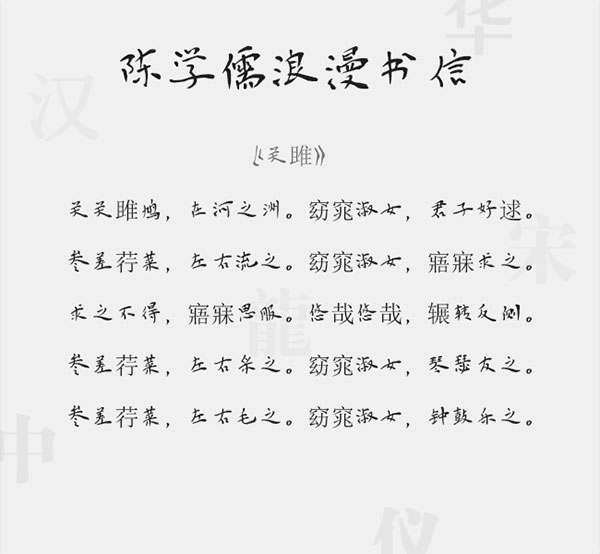 华
汉
陈学儒浪漫书信
《关雎》
关关雎鸠，在河之洲。窈窕淑女，君子好逑。
宋
参差荇菜，左右流之。窈窕淑女，寤寐求之。
求之不得，寤寐思服。悠哉悠哉，辗转反侧。
龍
参差荇菜，左右采之。窈窕淑女，琴瑟友之。
参差荇菜，左右毛之。窈窕淑女，钟鼓乐之。
中
仪